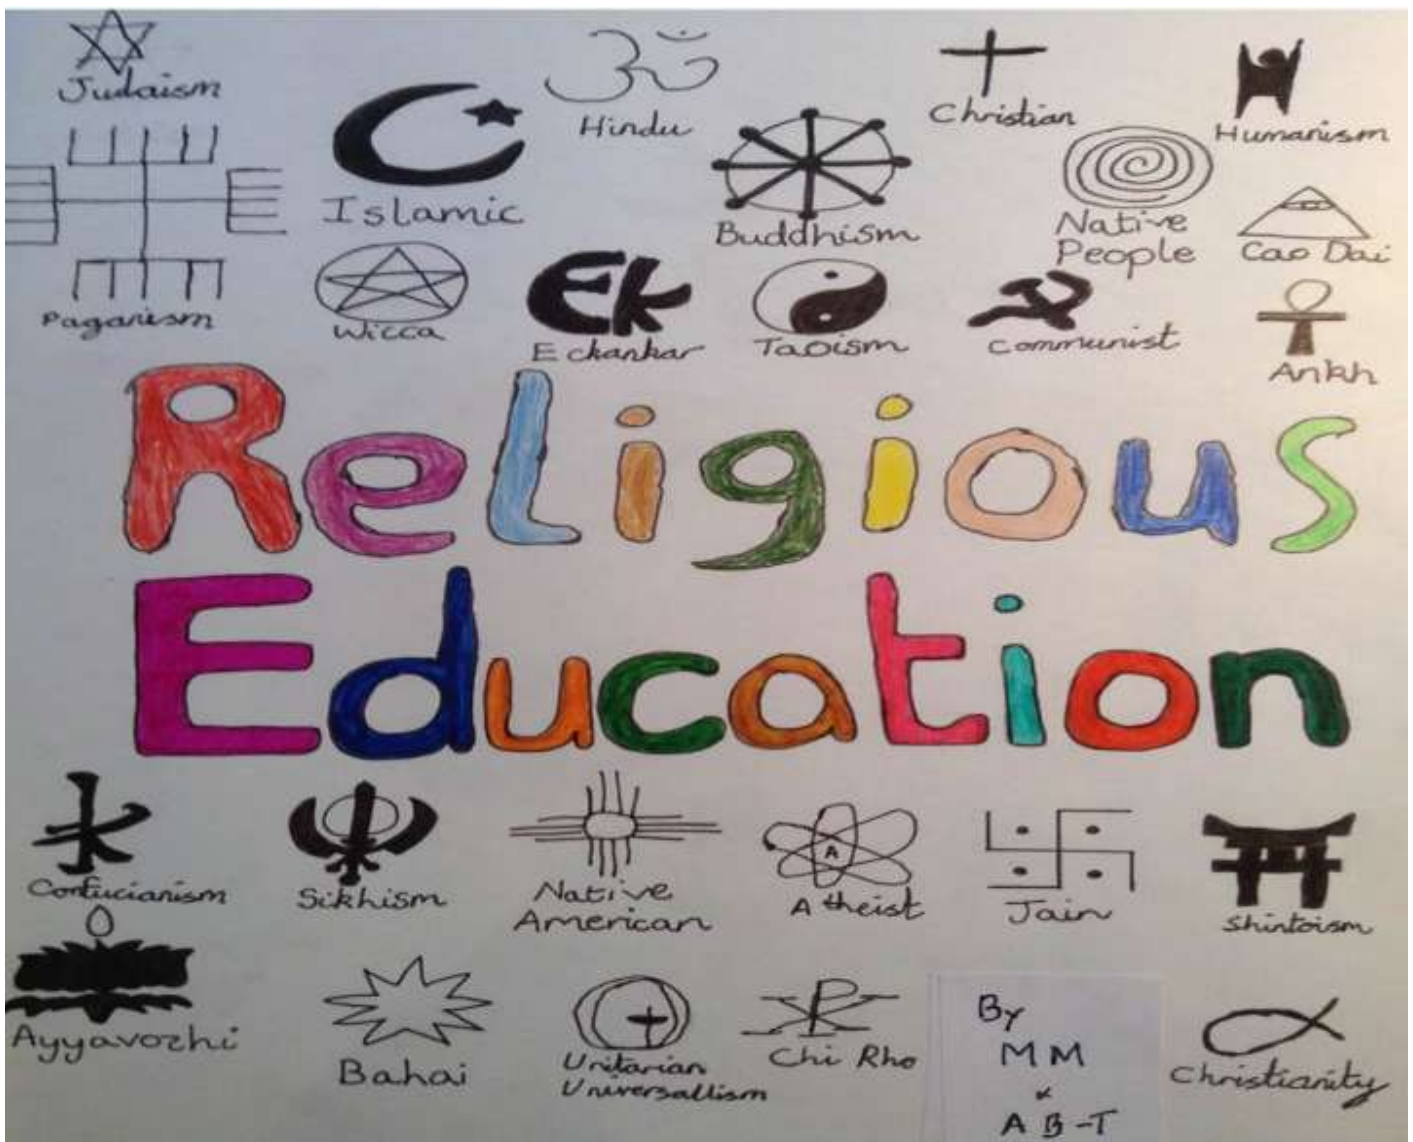 Judaism
Hindu
Christian
Humanism
Islamic
Buddhism
Native
People
Cao Dai
Paganism
Wicca
Eckankar
Taoism
Communist
Ankh
Religious
Education
Confucianism
Sikhism
Native
American
A
Atheist
Jain
Shintoism
Ayyavozhi
Bahai
Unitarian
Universallism
Chi Rho
By
MM
&
AB-T
Christianity